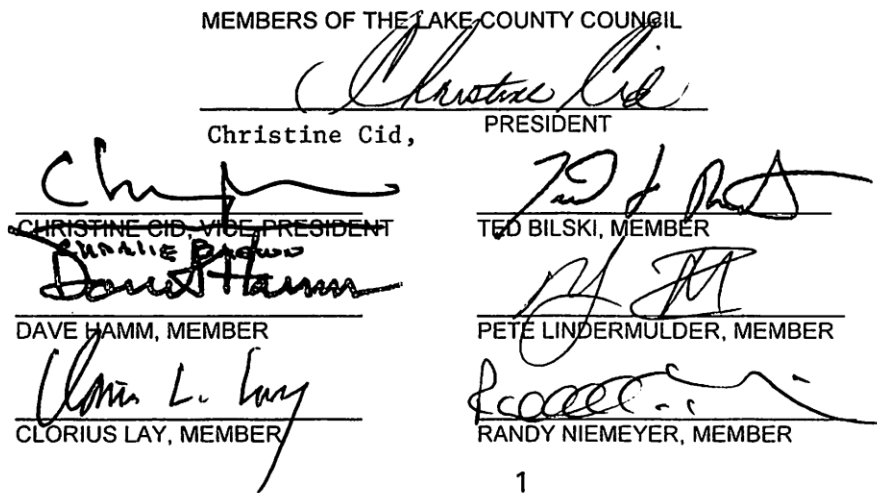 MEMBERS OF THE LAKE COUNTY COUNCIL
Christine Cid
Christine Cid, PRESIDENT
CHRISTINE CID, VICE-PRESIDENT TED BILSKI, MEMBER
CHARLIE BROWN
Dave Hamm
DAVE HAMM, MEMBER PETE LINDERMULDER, MEMBER
Clorius L. Lay
CLORIUS LAY, MEMBER RANDY NIEMEYER, MEMBER
1